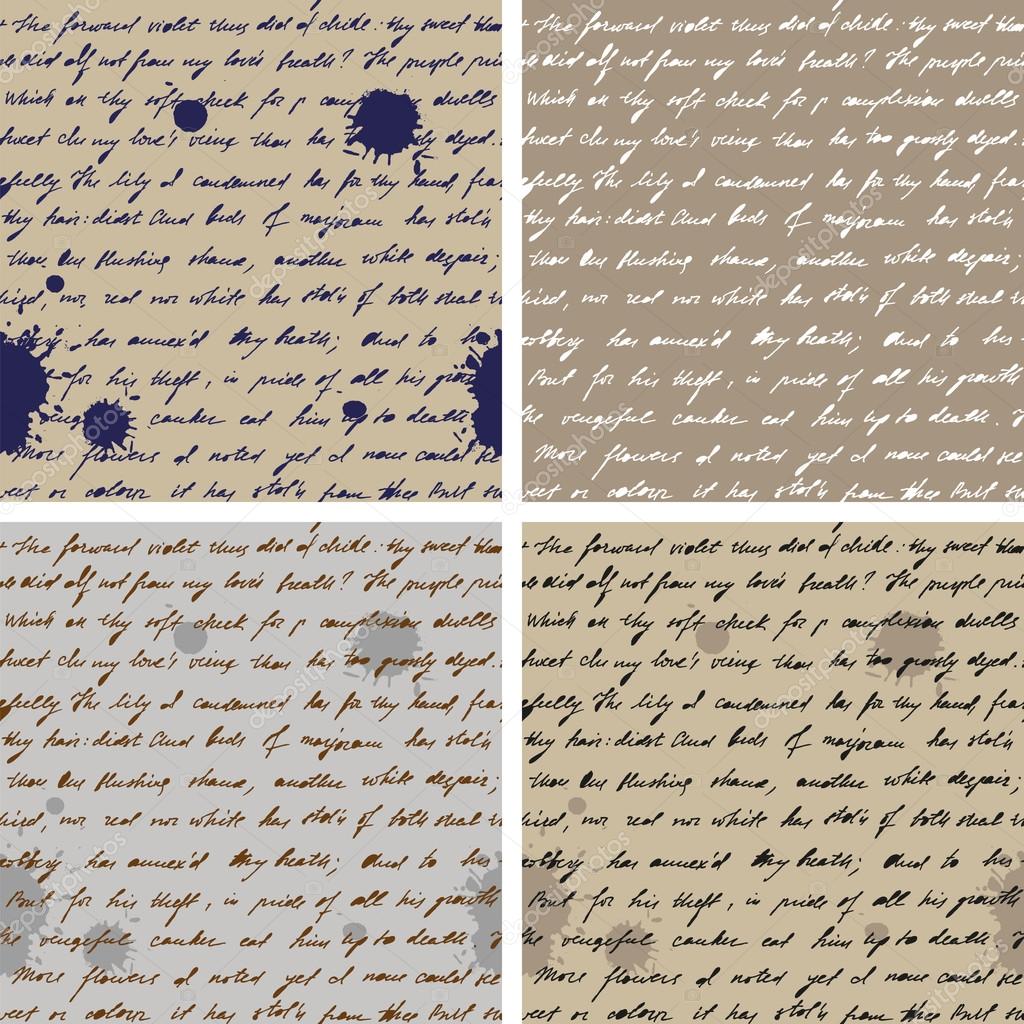 The forward violet thus did I chide: thy sweet tha
did If not from my love's breath? The purple pri
Which on thy soft cheek for p comp dwells
my love's veins thou has ly dyed.
efully The lily I condemned has for thy hand, fear
thy hair: didst And buds of marjoram has stol'n
thou One flushing shame, another white despair;
hird, nor red nor white has stol'n of both steal
has annex'd thy breath; And to his
for his theft, in pride of all his grow
veng canker eat him up to death
More flowers I noted yet I none could se
eet or colour it has stol'n from thee But sw
The forward violet thus did I chide: thy sweet tha
did If not from my love's breath? The purple pri
Which on thy soft cheek for p complexion dwells
my love's veins thou has too grossly dyed.
efully The lily I condemned has for thy hand, fear
thy hair: didst And buds of marjoram has stol'n
thou One flushing shame, another white despair;
hird, nor red nor white has stol'n of both steal
obbery has annex'd thy breath; And to his
But for his theft, in pride of all his growth
he vengeful canker eat him up to death. T
More flowers I noted yet I none could se
eet or colour it has stol'n from thee But sw
The forward violet thus did I chide: thy sweet tha
did If not from my love's breath? The purple pri
Which on thy soft cheek for p complexion dwells
my love's veins thou has too grossly dyed.
efully The lily I condemned has for thy hand, fear
thy hair: didst And buds of marjoram has stol'n
thou One flushing shame, another white despair;
hird, nor red nor white has stol'n of both steal
obbery has annex'd thy breath; And to his
But for his theft, in pride of all his growth
he vengeful canker eat him up to death. T
More flowers I noted yet I none could se
eet or colour it has stol'n from thee But sw
The forward violet thus did I chide: thy sweet tha
did If not from my love's breath? The purple pri
Which on thy soft cheek for p complexion dwells
my love's veins thou has too grossly dyed.
efully The lily I condemned has for thy hand, fear
thy hair: didst And buds of marjoram has stol'n
thou One flushing shame, another white despair;
hird, nor red nor white has stol'n of both steal
obbery has annex'd thy breath; And to his
But for his theft, in pride of all his growth
he vengeful canker eat him up to death. T
More flowers I noted yet I none could se
eet or colour it has stol'n from thee But sw